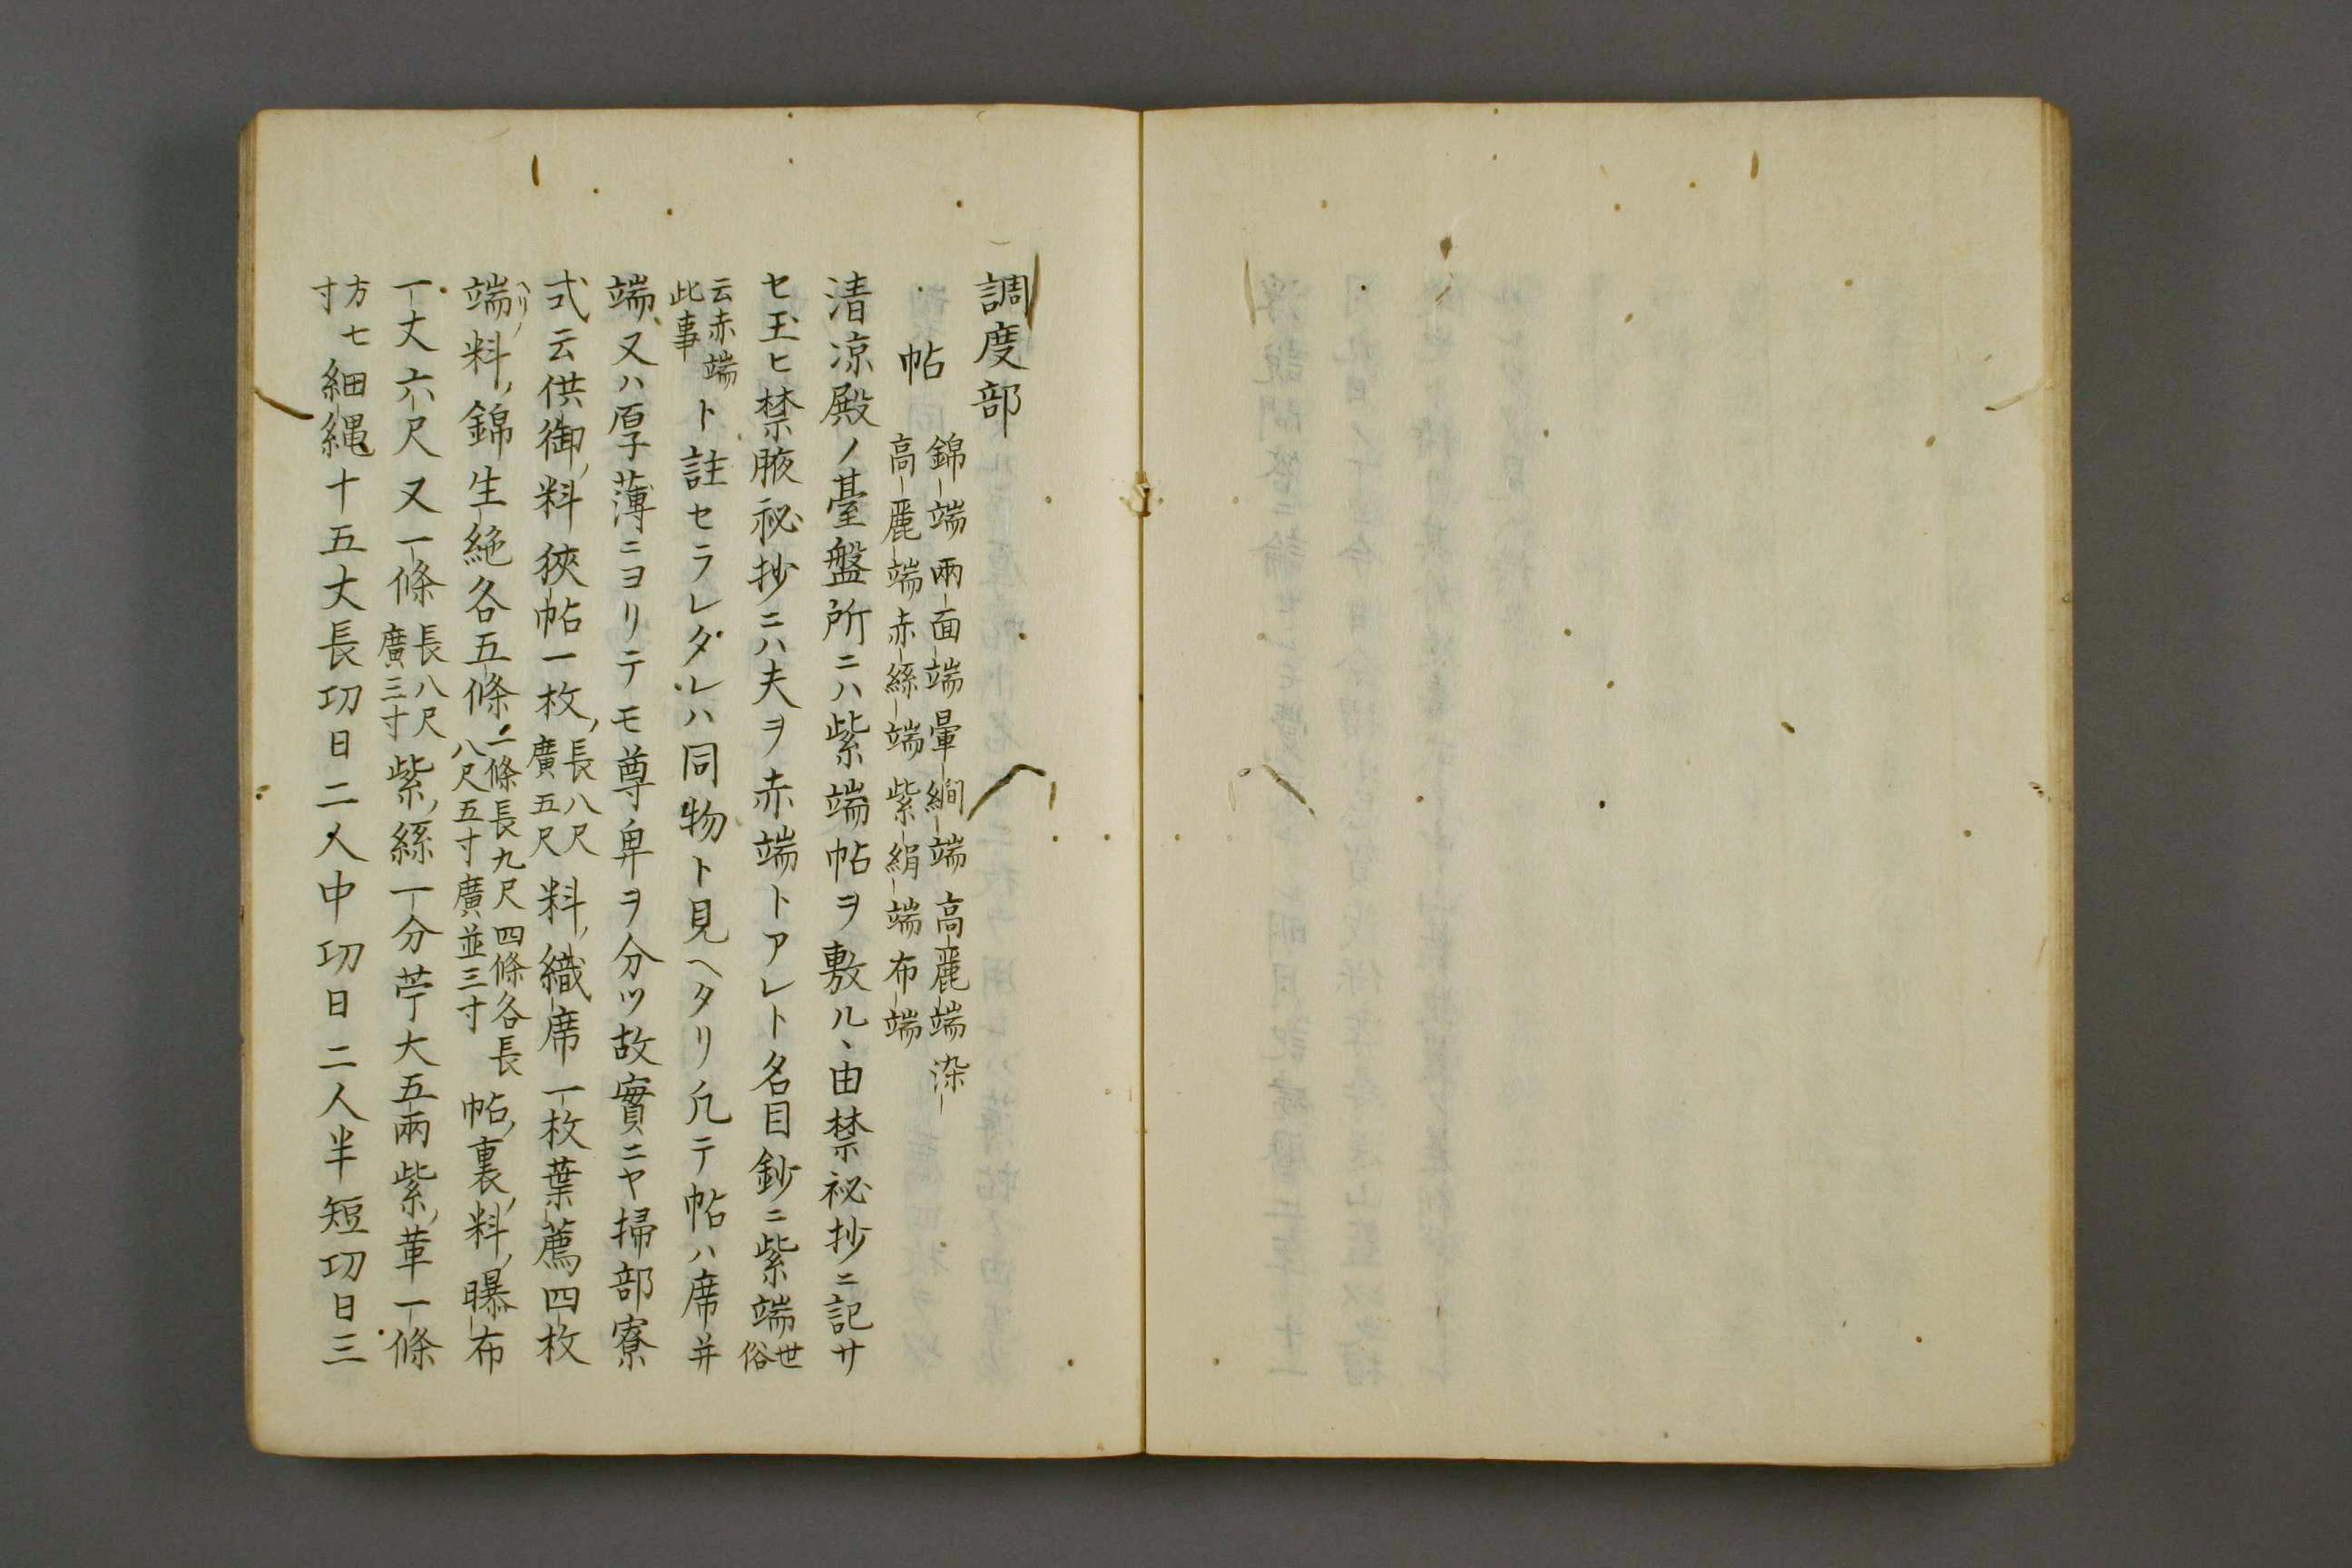 調度部
帖 錦端兩面端暈繝端高麗端染
高麗端赤絲端紫絹端布端
清凉殿ノ臺盤所ニハ紫端帖ヲ敷ル、由禁祕抄ニ記サ
セ玉ヒ禁腋祕抄ニハ夫ヲ赤端トアレト名目鈔ニ紫端世俗
云赤端此事ト註セラレタレハ同物ト見ヘタリ凢テ帖ハ席并
端又ハ厚薄ニヨリテモ尊卑ヲ分ツ故實ニヤ掃部寮
式云供御料狹帖一枚長八尺廣五尺料織席一枚葉薦四枚
端料錦生絁各五條一條長九尺四條各長八尺五寸廣並三寸帖裏料曝布
一丈六尺又一條長八尺廣三寸紫絲一分苧大五兩紫革一條
方七寸細繩十五丈長功日二人中功日二人半短功日三